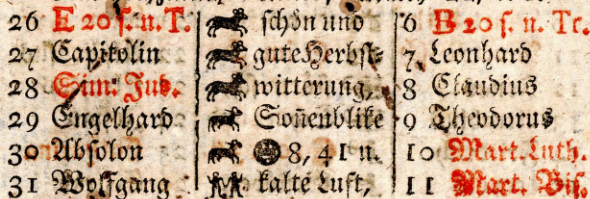 26 E 20 ſ. n. T. ſchön und 6 B 20 ſ. n. Tr.
27 Capitolin gute Herbſt- 7 Leonhard
28 Sim. Jud. witterung, 8 Claudius
29 Engelhard Soñenblike 9 Theodorus
30 Abſolon 8, 41 n. 10 Mart. Luth.
31 Wolfgang kalte Luft, 11 Mart. Biſ.